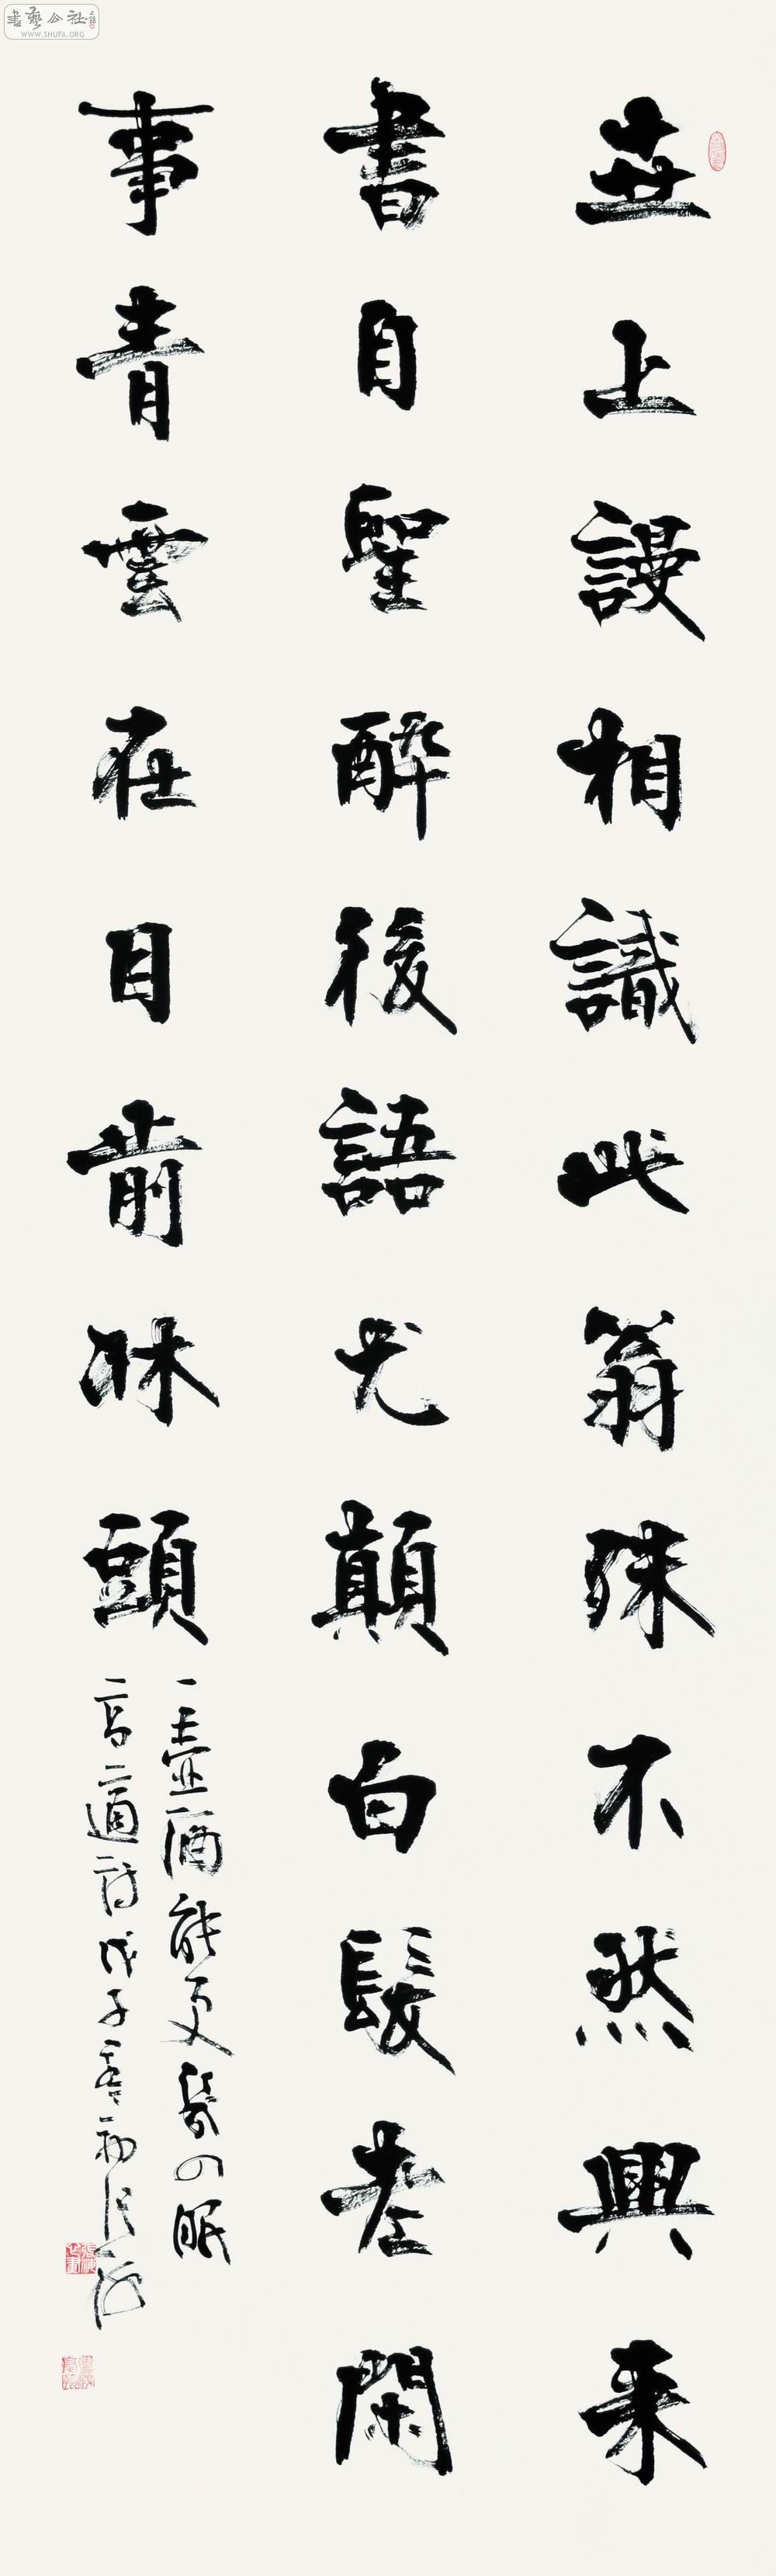 世上謾相識此翁殊不然興来
書自聖醉後語尤顛白髮老閑
事青雲在目前牀頭
一壺酒能更幾回眠
高適詩戊子春初
書藝公社
WWW.SHUFA.ORG